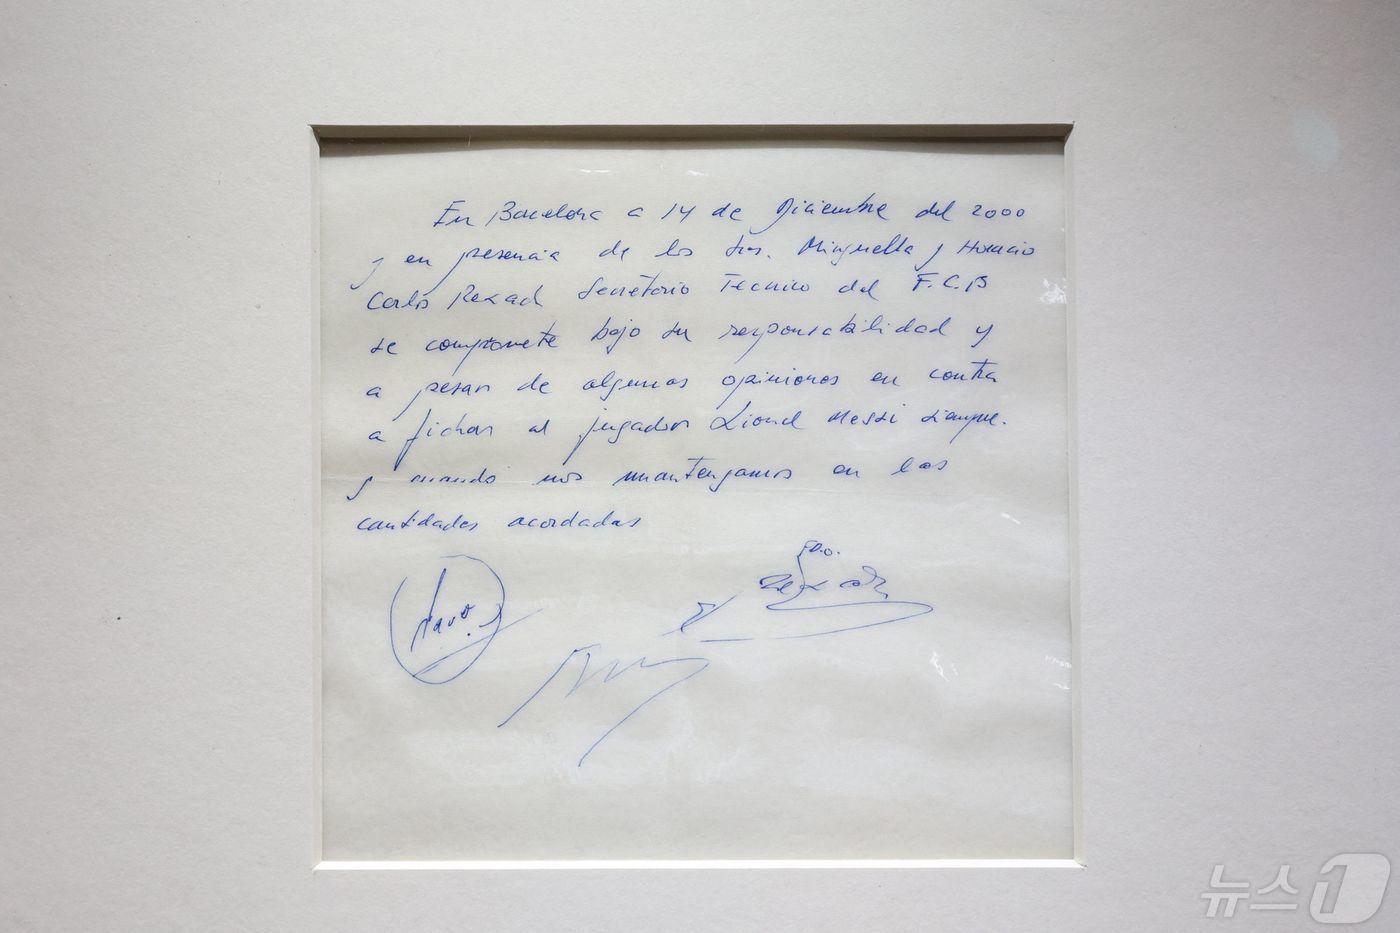 En Barcelona a 14 de Diciembre del 2000
y en presencia de los Srs. Minguella y Horacio
Carlos Rexach Secretario Tecnico del F.C.B
se compromete bajo su responsabilidad y
a pesar de algunas opiniones en contra
a fichar al jugador Lionel Messi siempre.
y cuando nos mantengamos en las
cantidades acordadas
Rexach
뉴스1